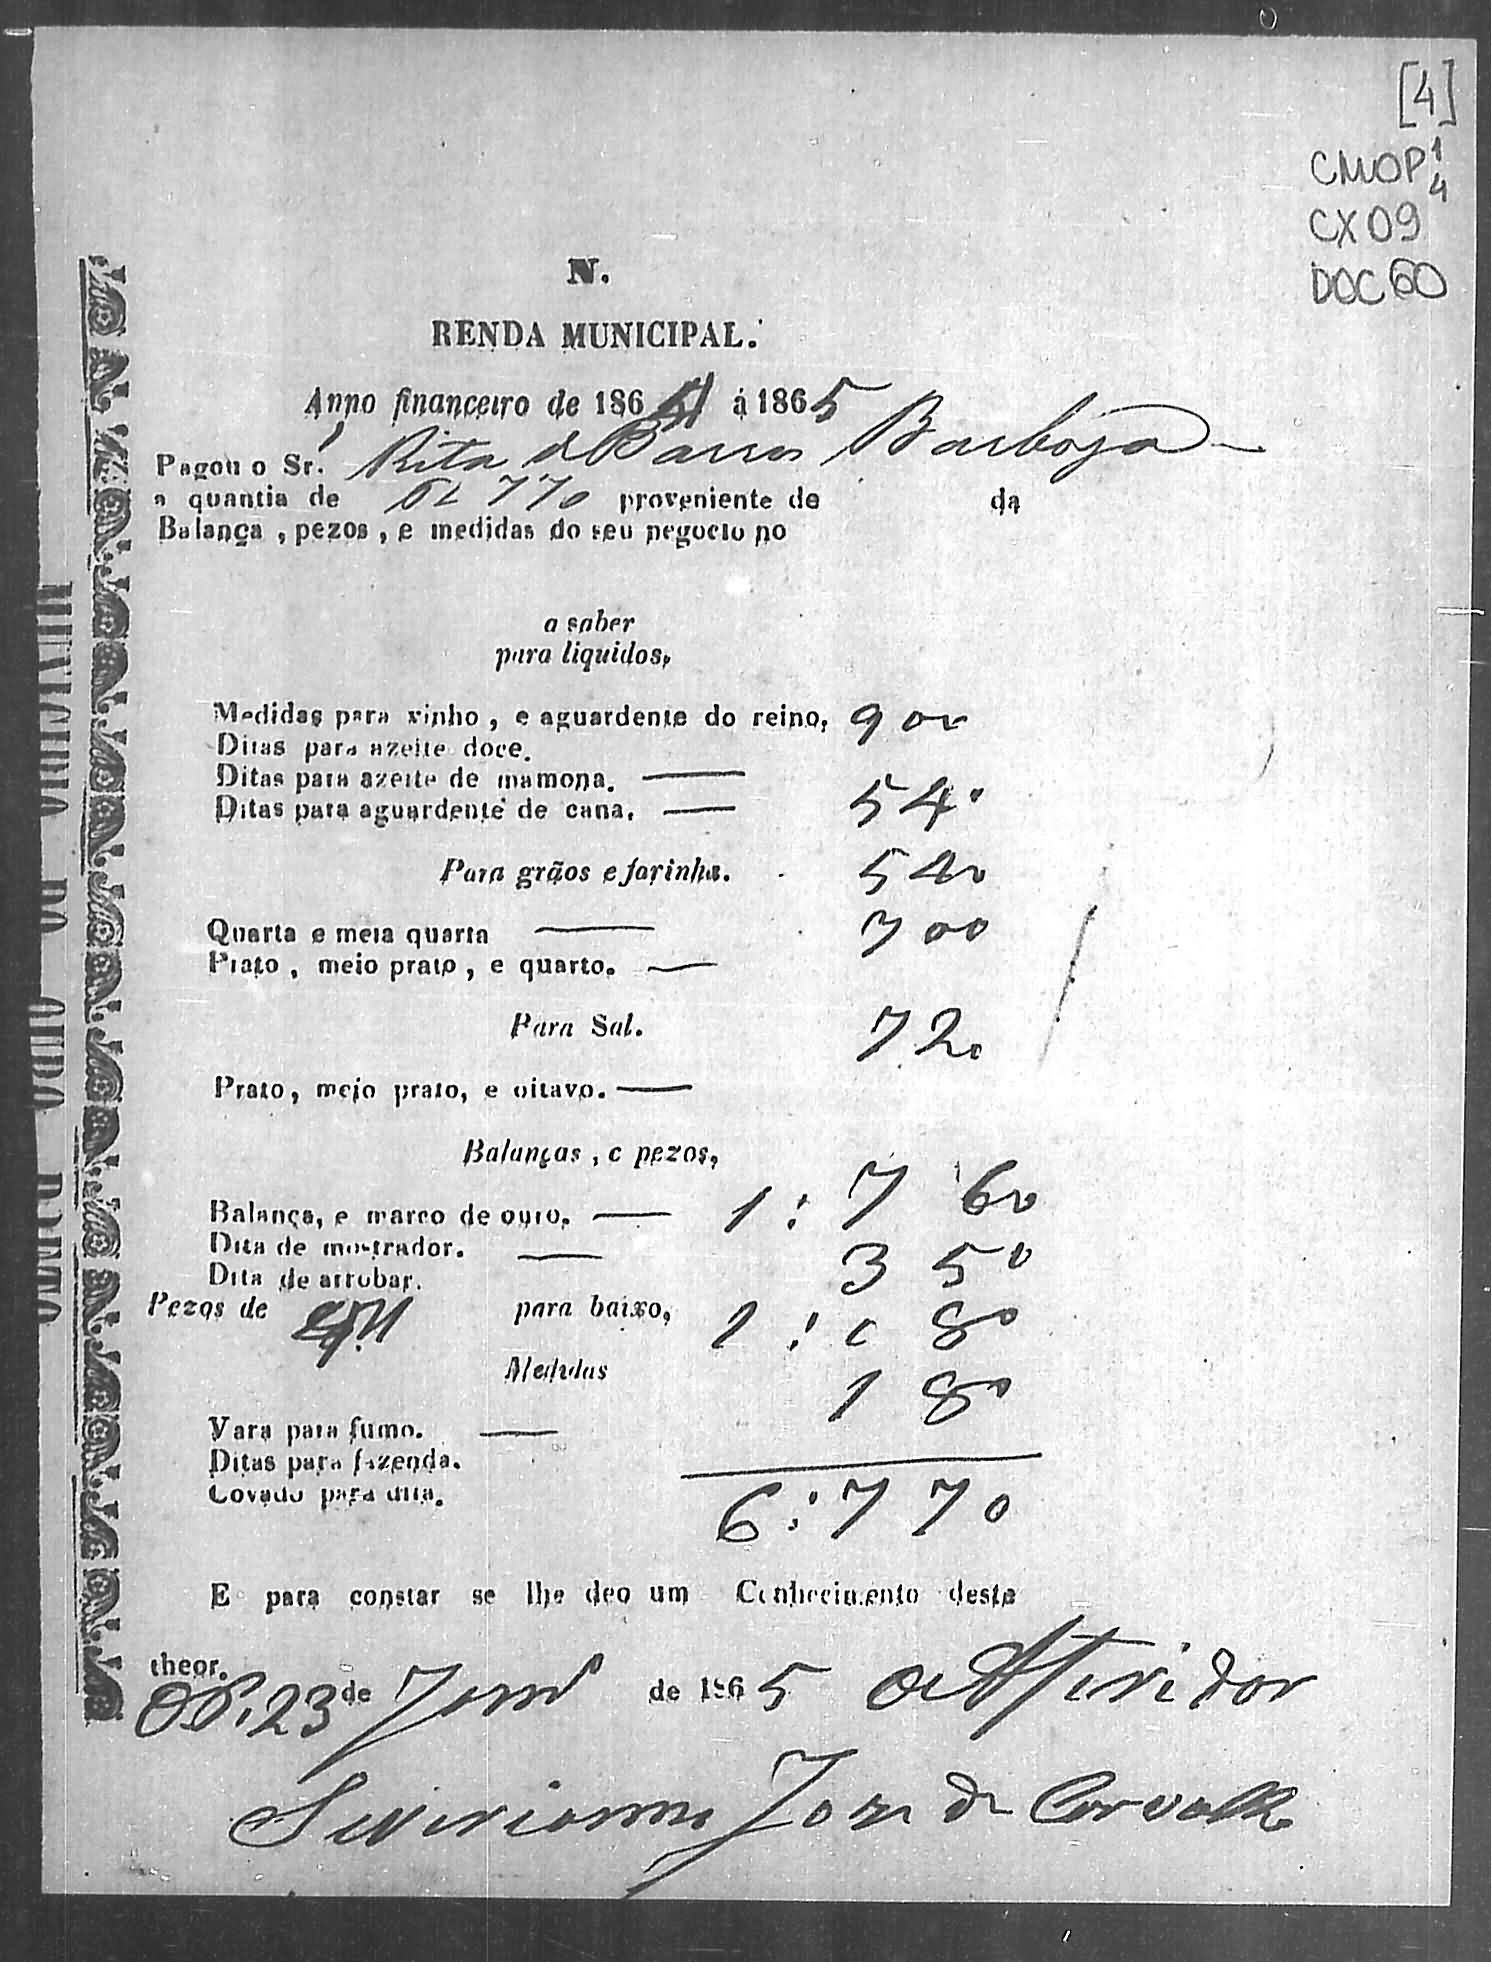 [4]
CMOP 1/4
CX 09
DOC 60
N.
RENDA MUNICIPAL.
Anno financeiro de 1864 á 1865
Pagou o Sr. Rita de Barros Barboza
a quantia de 6$770 proveniente de da
Balança, pezos, e medidas do seu negocio no
a saber
para liquidos,
Medidas para vinho, e aguardente do reino, 900
Ditas para azeite doce.
Ditas para azeite de mamona. —
Ditas para aguardente de cana. — 540
Para grãos e farinha. 540
Quarta e meia quarta — 700
Prato, meio prato, e quarto. —
Para Sal. 720
Prato, meio prato, e oitavo. —
Balanças, e pezos,
Balança, e marco de ouro. — 1:760
Dita de mostrador. — 350
Dita de arrobar.
Pezos de para baixo, 1:080
Medidas 180
Vara para fumo. —
Ditas para fazenda.
Covado para dita. 6:770
E para constar se lhe deo um Conhecimento deste
theor.
OP. 23 de de 1865 O Aferidor
Severianno Joze de Carvalho
MUNICIPIO DO OURO PRETO